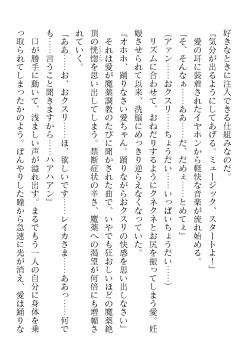 好きなときに注入できる仕組みなのだ。
「気分が出るようにしてあげる。ミュージック、スタートよ！」
愛の耳に装着されたイヤホンから軽快な音楽が流れ始める。
「そ、そんなぁ……ああ……だ、だめぇ……とめてぇ」
（アァン……おクスリ……もうだめ……いっぱいちょうだい……）
リズムに合わせて、おねだりするようにクネクネとお尻を振ってしまう愛。妊
娠させられて以来、洗脳にめっきり逆らえなくなっていた。
「オホホ、踊りなさい愛ちゃん。踊りながらおクスリの快感を思い出しなさい」
それは愛が魔薬調教のたびに聞かされた曲で、いやでも狂おしいほどの魔薬絶
頂の恍惚を思い出してしまう。禁断症状の辛さ、魔薬への渇望が何倍にも増幅さ
れていく。
「ああ……お、おクスリ……ほ、欲しいです……レイカさま……ああっ……何で
も……言うこと聞きますから……ハアハアン」
口が勝手に動いて、浅ましい声が溢れ出す。まるでもう一人の自分に身体を乗
っ取られてしまったかのよう。ぼんやりした瞳から急速に光が消え、愛は踊りな